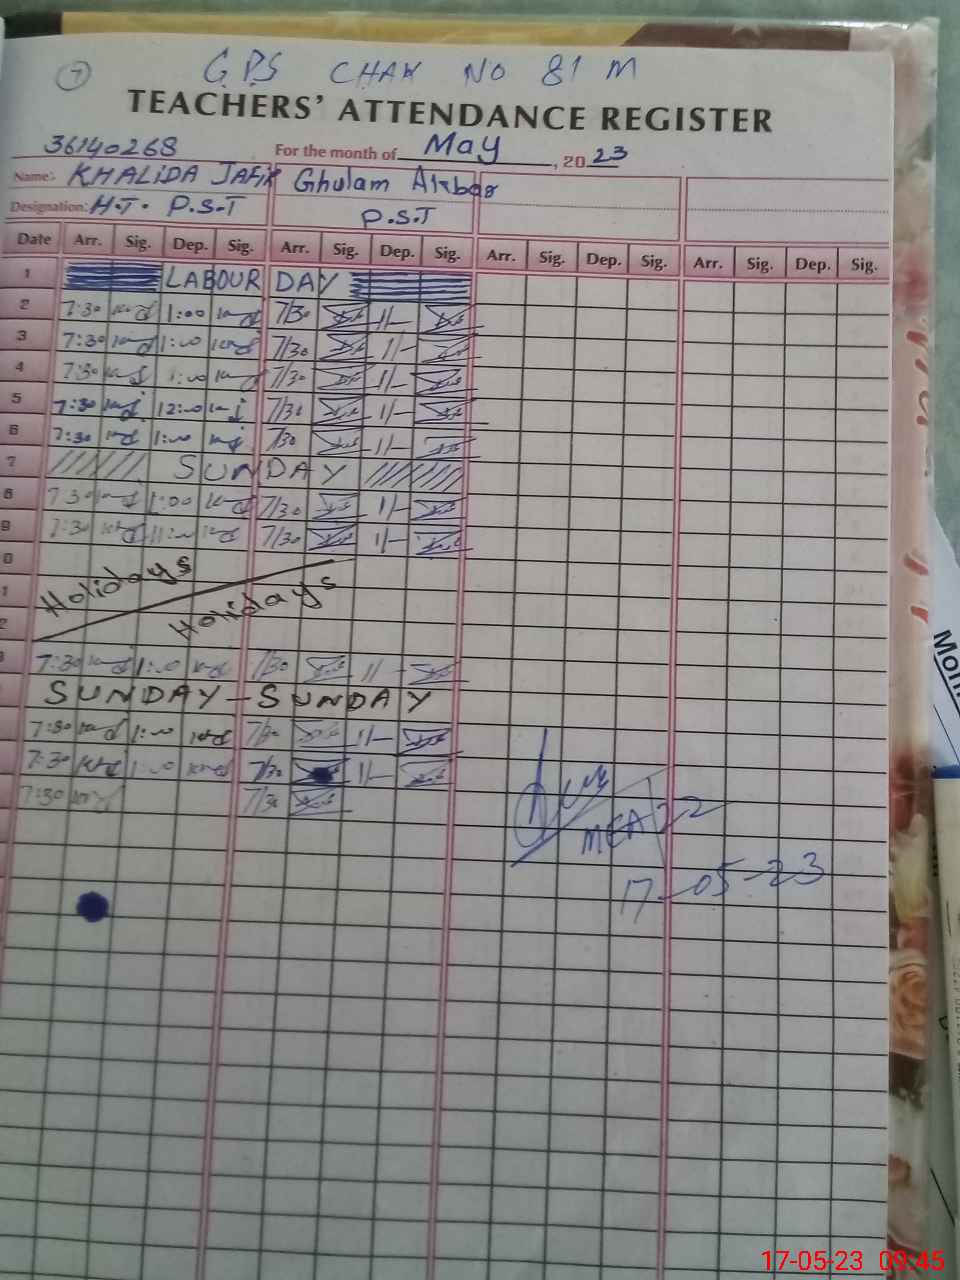 7
G.P.S CHAK NO 81 M
TEACHERS' ATTENDANCE REGISTER
36140268
For the month of May, 2023
Name: KHALIDA JAFIR Ghulam Akbar
Designation: H.T. P.S.T P.S.T
Date Arr. Sig. Dep. Sig. Arr. Sig. Dep. Sig. Arr. Sig. Dep. Sig. Arr. Sig. Dep. Sig.
1 LABOUR DAY
2 7:30 1:00 7/30 1/-
3 7:30 1:00 7/30 1/-
4 7:30 1:00 7/30 1/-
5 7:30 12:00 7/30 1/-
6 7:30 1:00 7/30 1/-
7 SUNDAY
8 7:30 1:00 7/30 1/-
9 7:30 11:00 7/30 1/-
0
1 Holidays
2 Holidays
7:30 1:00 7/30 1/-
SUNDAY - SUNDAY
7:30 1:00 7/30 1/-
7:30 1:00 7/30 1/-
7:30 7/30
MEA 22
17-05-23
Mon
17-05-23 09:45